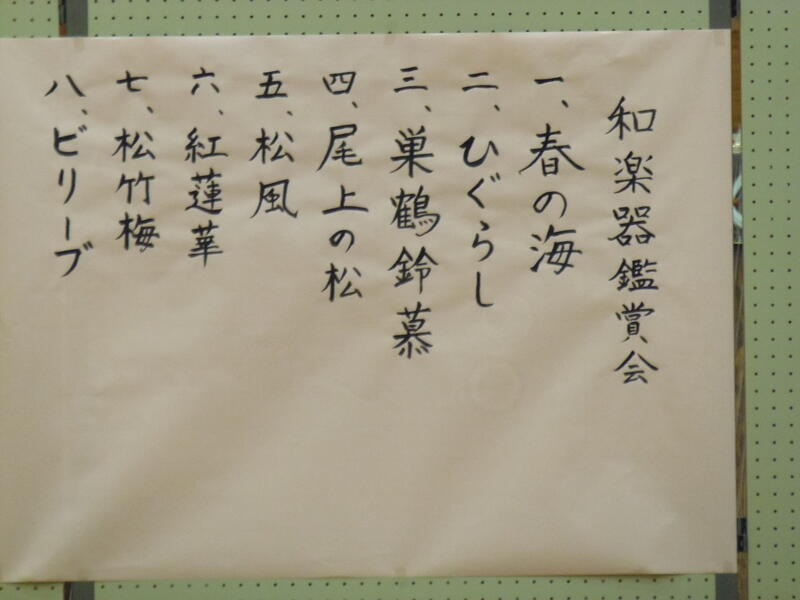 和楽器鑑賞会
一、春の海
二、ひぐらし
三、巣鶴鈴慕
四、尾上の松
五、松風
六、紅蓮華
七、松竹梅
八、ビリーブ